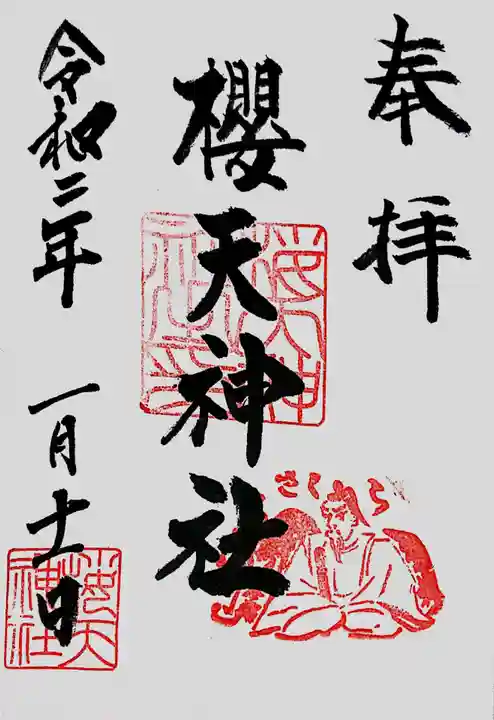 奉拝
櫻天神社
さくら
令和二年 一月十一日